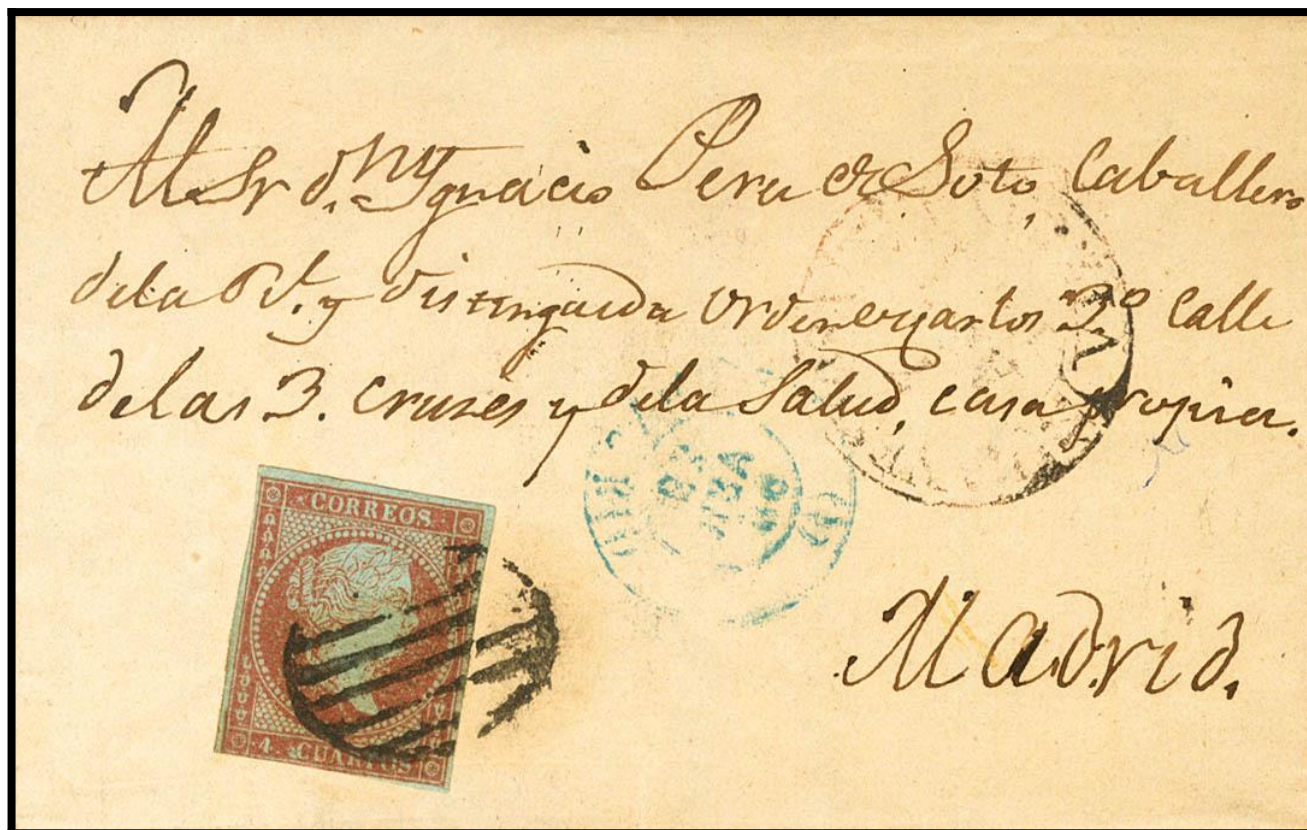 Al Sr d.n Ygnacio Pera de Soto, Caballero
dela Rl. y distinguida orden cuartos 3.º Calle
delas 3. cruzes y dela Salud, casa propia.
Madrid.
CORREOS
4. CUARTOS